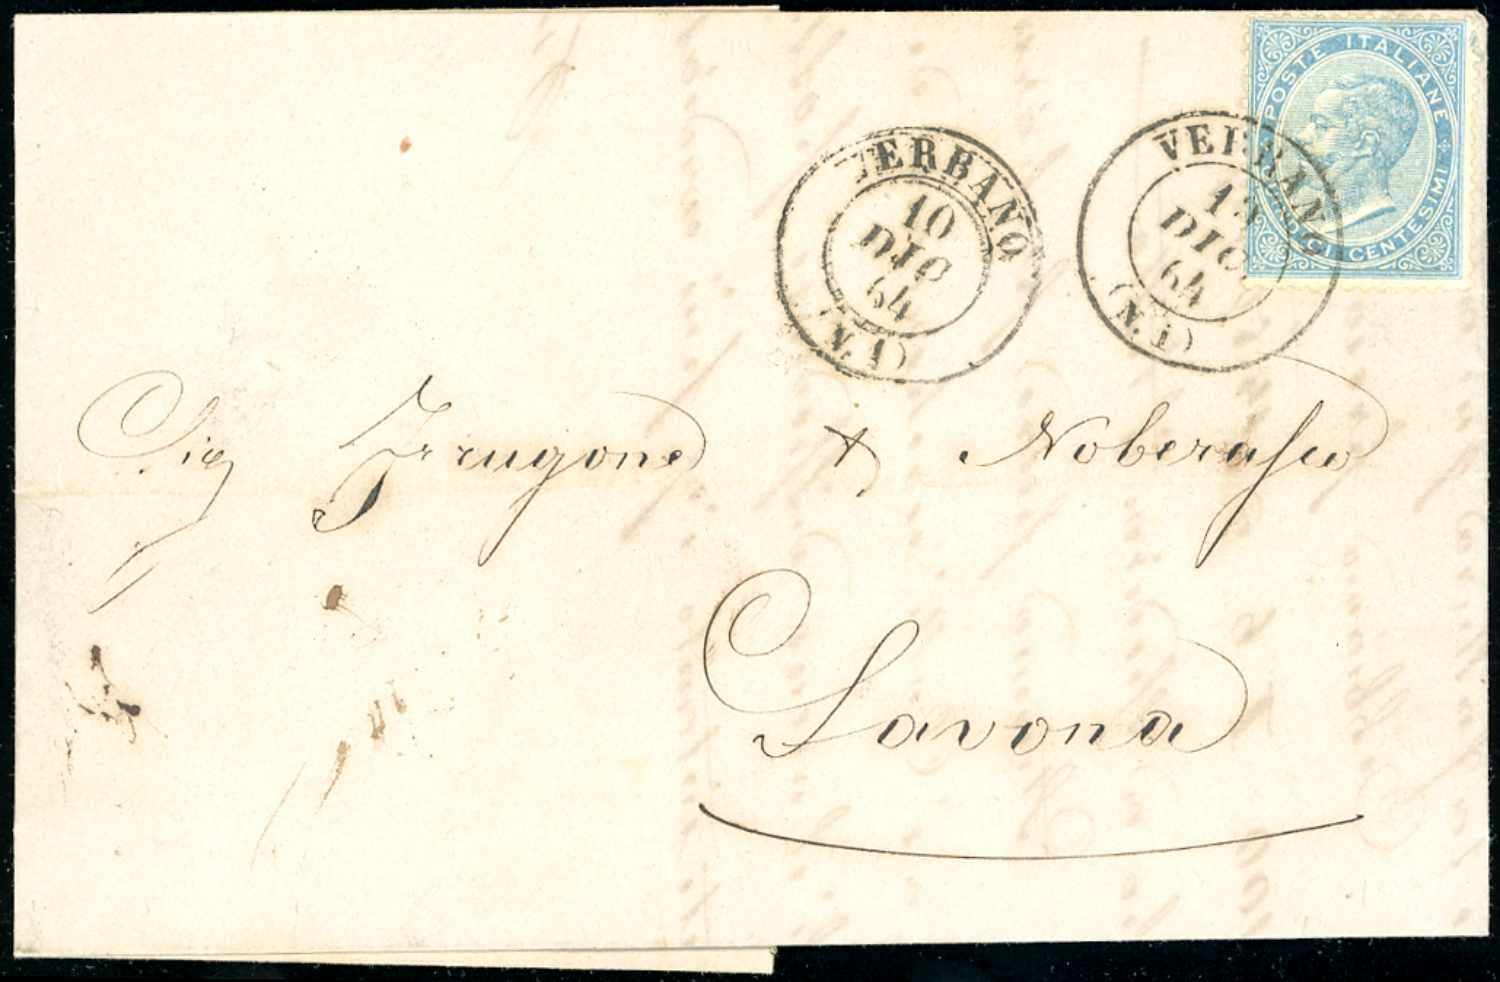 POSTE ITALIANE
DIECI CENTESIMI
VERBANO
10
DIC
64
(N. 1)
VERBANO
DIC
64
(N. 1)
Sig Frugone & Noberasco
Savona